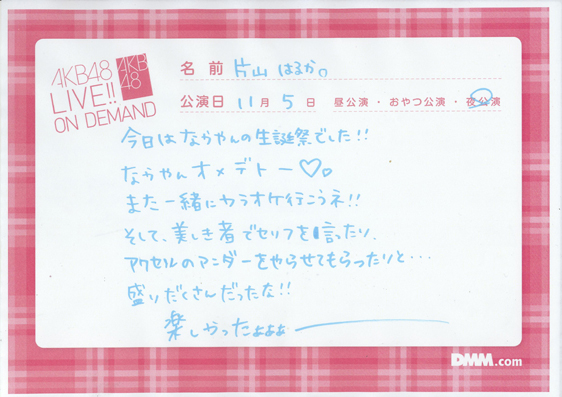 AKB48
LIVE!!
ON DEMAND
AKB
48
名前 片山 はるか。
公演日 11月 5日 昼公演・おやつ公演・夜公演
今日はならやんの生誕祭でした!!
ならやんオメデトー♡。
また一緒にカラオケ行こうネ!!
そして、美しき者でセリフを言ったり、
アクセルのアンダーをやらせてもらったりと…
盛りだくさんだったな!!
楽しかったょょょ
DMM.com